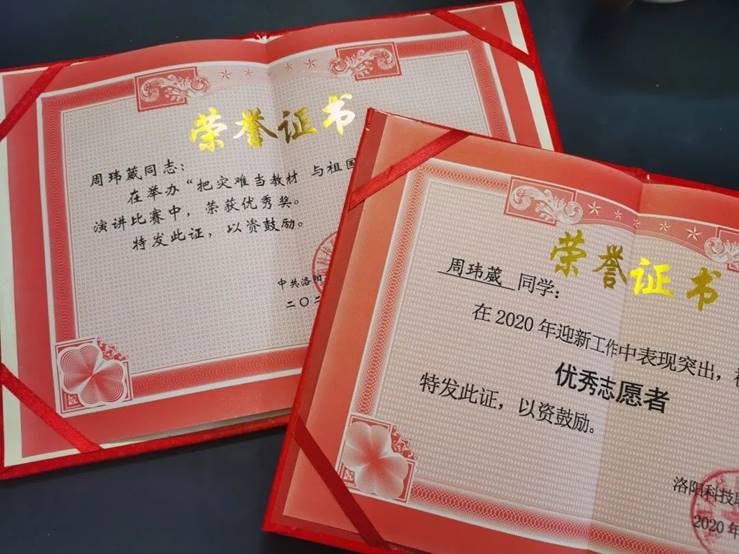 荣誉证书
周玮葳同志：
在举办“把灾难当教材 与祖国
演讲比赛中，荣获优秀奖。
特发此证，以资鼓励。
中共洛阳
二〇二
荣誉证书
周玮葳 同学：
在2020年迎新工作中表现突出，
优秀志愿者
特发此证，以资鼓励。
洛阳科技职
2020年